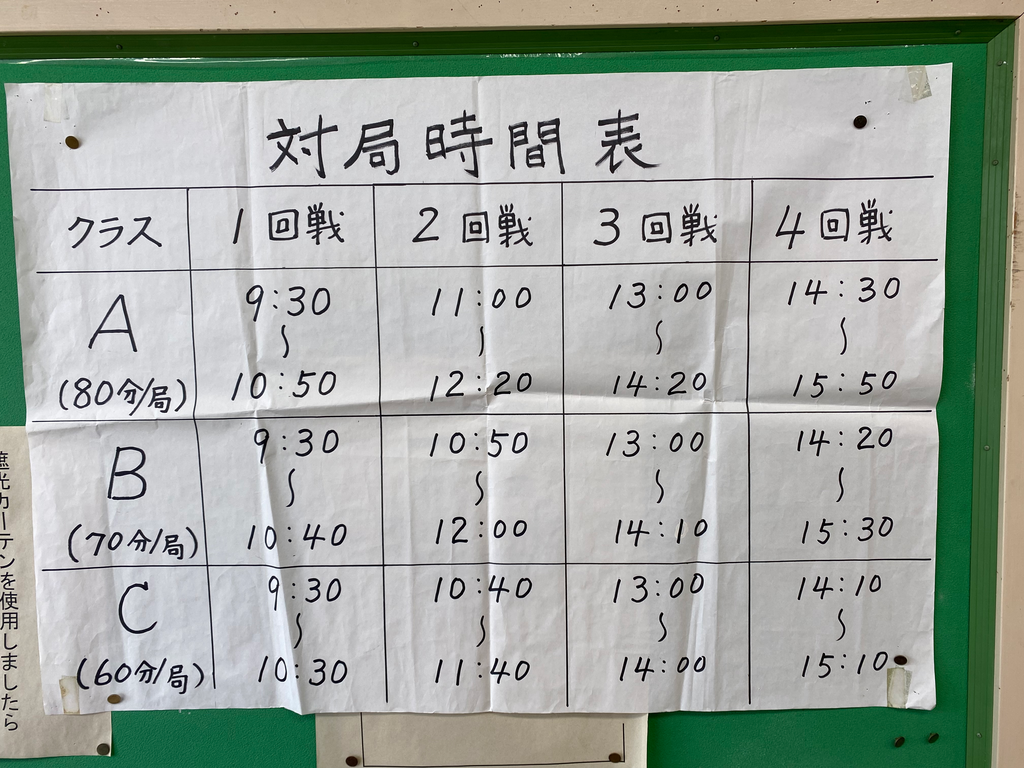 対局時間表
クラス 1回戦 2回戦 3回戦 4回戦
A 9:30 11:00 13:00 14:30
〜 〜 〜 〜
(80分/局) 10:50 12:20 14:20 15:50
B 9:30 10:50 13:00 14:20
〜 〜 〜 〜
(70分/局) 10:40 12:00 14:10 15:30
C 9:30 10:40 13:00 14:10
〜 〜 〜 〜
(60分/局) 10:30 11:40 14:00 15:10
遮光カーテンを使用しましたら